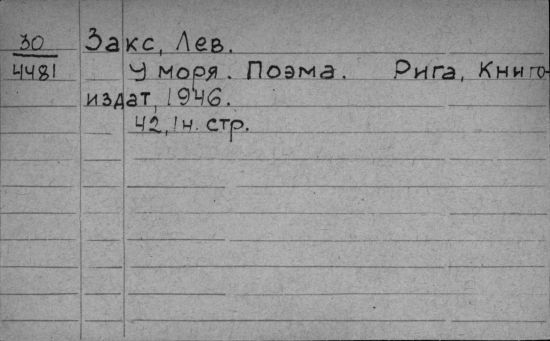 30 Закс, Лев.
4481 У моря. Поэма. Рига, Книго-
издат, 1946.
42, 1 н. стр.